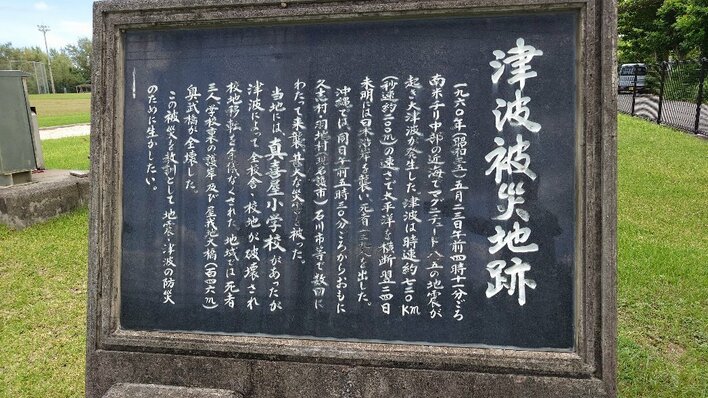 津波被災地跡
一九六〇年(昭和三五)五月二三日午前四時十一分ごろ
南米チリ中部の近海でマグニチュード八・五の地震が
起き大津波が発生した。津波は時速約七二〇km
(秒速約二〇〇m)の速さで太平洋を横断翌二四日
未明には日本沿岸を襲い死者 を出した。
沖縄では同日午前五時三〇分ごろからおもに
久志村・羽地村(現名護市)石川市等で数回に
わたって来襲、甚大な災害を被った。
当地には真喜屋小学校があったが
津波によって全校舎・校地が破壊され
校地移転を余儀なくされた。地域では死者
三人学校裏の護岸及び屋我地大橋(百四六m)
奥武橋が全壊した。
この被災を教訓として地震・津波の防災
のために生かしたい。